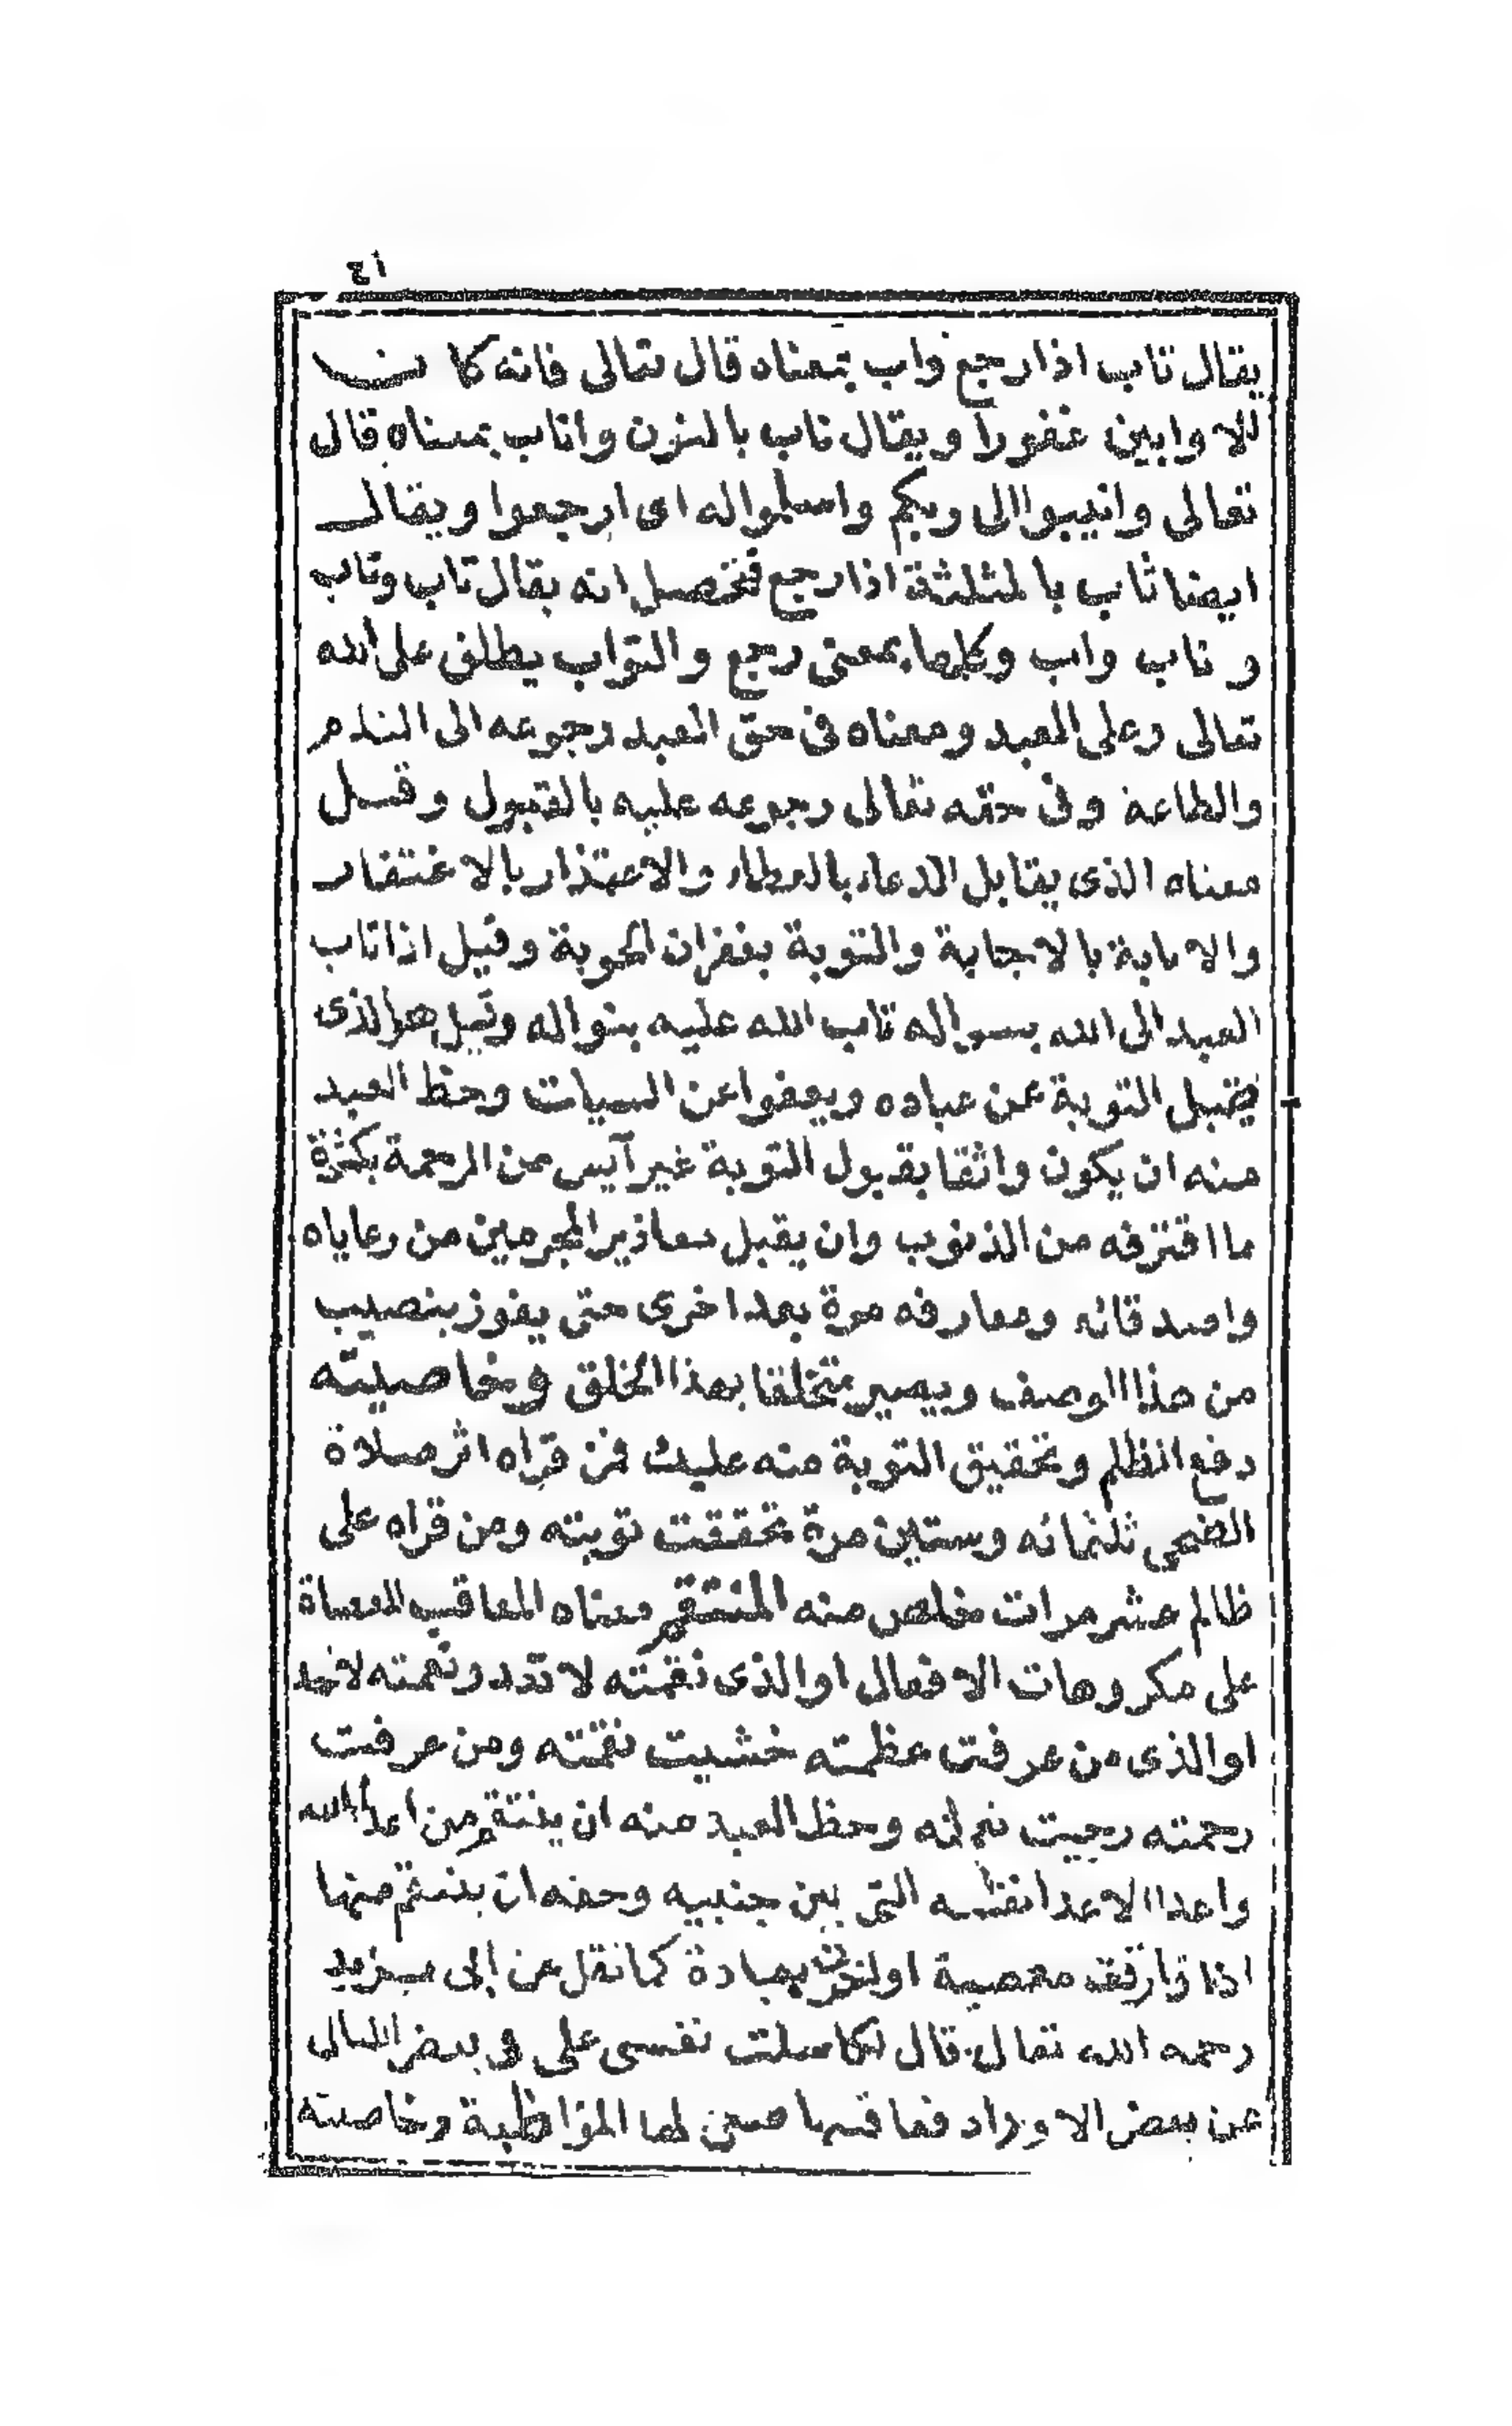 ٤١
يقال تاب اذا رجع واب بمعناه قال تعالى فانه كان
للاوابين غفورا ويقال ناب بالنون واناب بمعناه قال
تعالى وانيبوا الى ربكم واسلموا له اى ارجعوا ويقال
ايضا ثاب بالمثلثة اذا رجع فتحصل انه يقال تاب وثاب
وناب واب وكلها بمعنى رجع والتواب يطلق على الله
تعالى وعلى العبد ومعناه فى حق العبد رجوعه الى الندم
والطاعة وفى حقه تعالى رجوعه عليه بالقبول وقيل
معناه الذى يقابل الدعاء بالعطاء والاعتذار بالاغتفار
والانابة بالاجابة والتوبة بغفران الحوبة وقيل اذا تاب
العبد الى الله بسواله تاب الله عليه بنواله وقيل هو الذى
يقبل التوبة عن عباده ويعفوا عن السيات وحظ العبد
منه ان يكون واثقا بقبول التوبة غير آيس من الرحمة بكثرة
ما اقترفه من الذنوب وان يقبل معاذير المجرمين من رعاياه
واصدقائه ومعارفه مرة بعد اخرى حتى يفوز بنصيب
من هذا الوصف ويصير متخلقا بهذا الخلق وخاصيته
دفع الظلم وتحقيق التوبة منه عليك فمن قراه اثر صلاة
الضحى ثلثمائه وستين مرة تحققت توبته ومن قراه على
ظالم عشر مرات خلص منه المنتقم معناه المعاقب العصاة
على مكروهات الافعال او الذى نقمته لا ترد ونعمته لا تحد
او الذى من عرفت عظمته خشيت نقمته ومن عرفت
رحمته رجيت نعمته وحظ العبد منه ان ينتقم من اعدا الله
واعدا الاعدا نفسه التى بين جنبيه وحقه ان ينتقم منها
اذا قارفت معصية او بعبادة كما نقل عن ابى يزيد
رحمه الله تعالى قال تكاسلت نفسى على فى بعض الليالى
عن بعض الاوراد فعاقبتها لها المواظبة وخاصيته